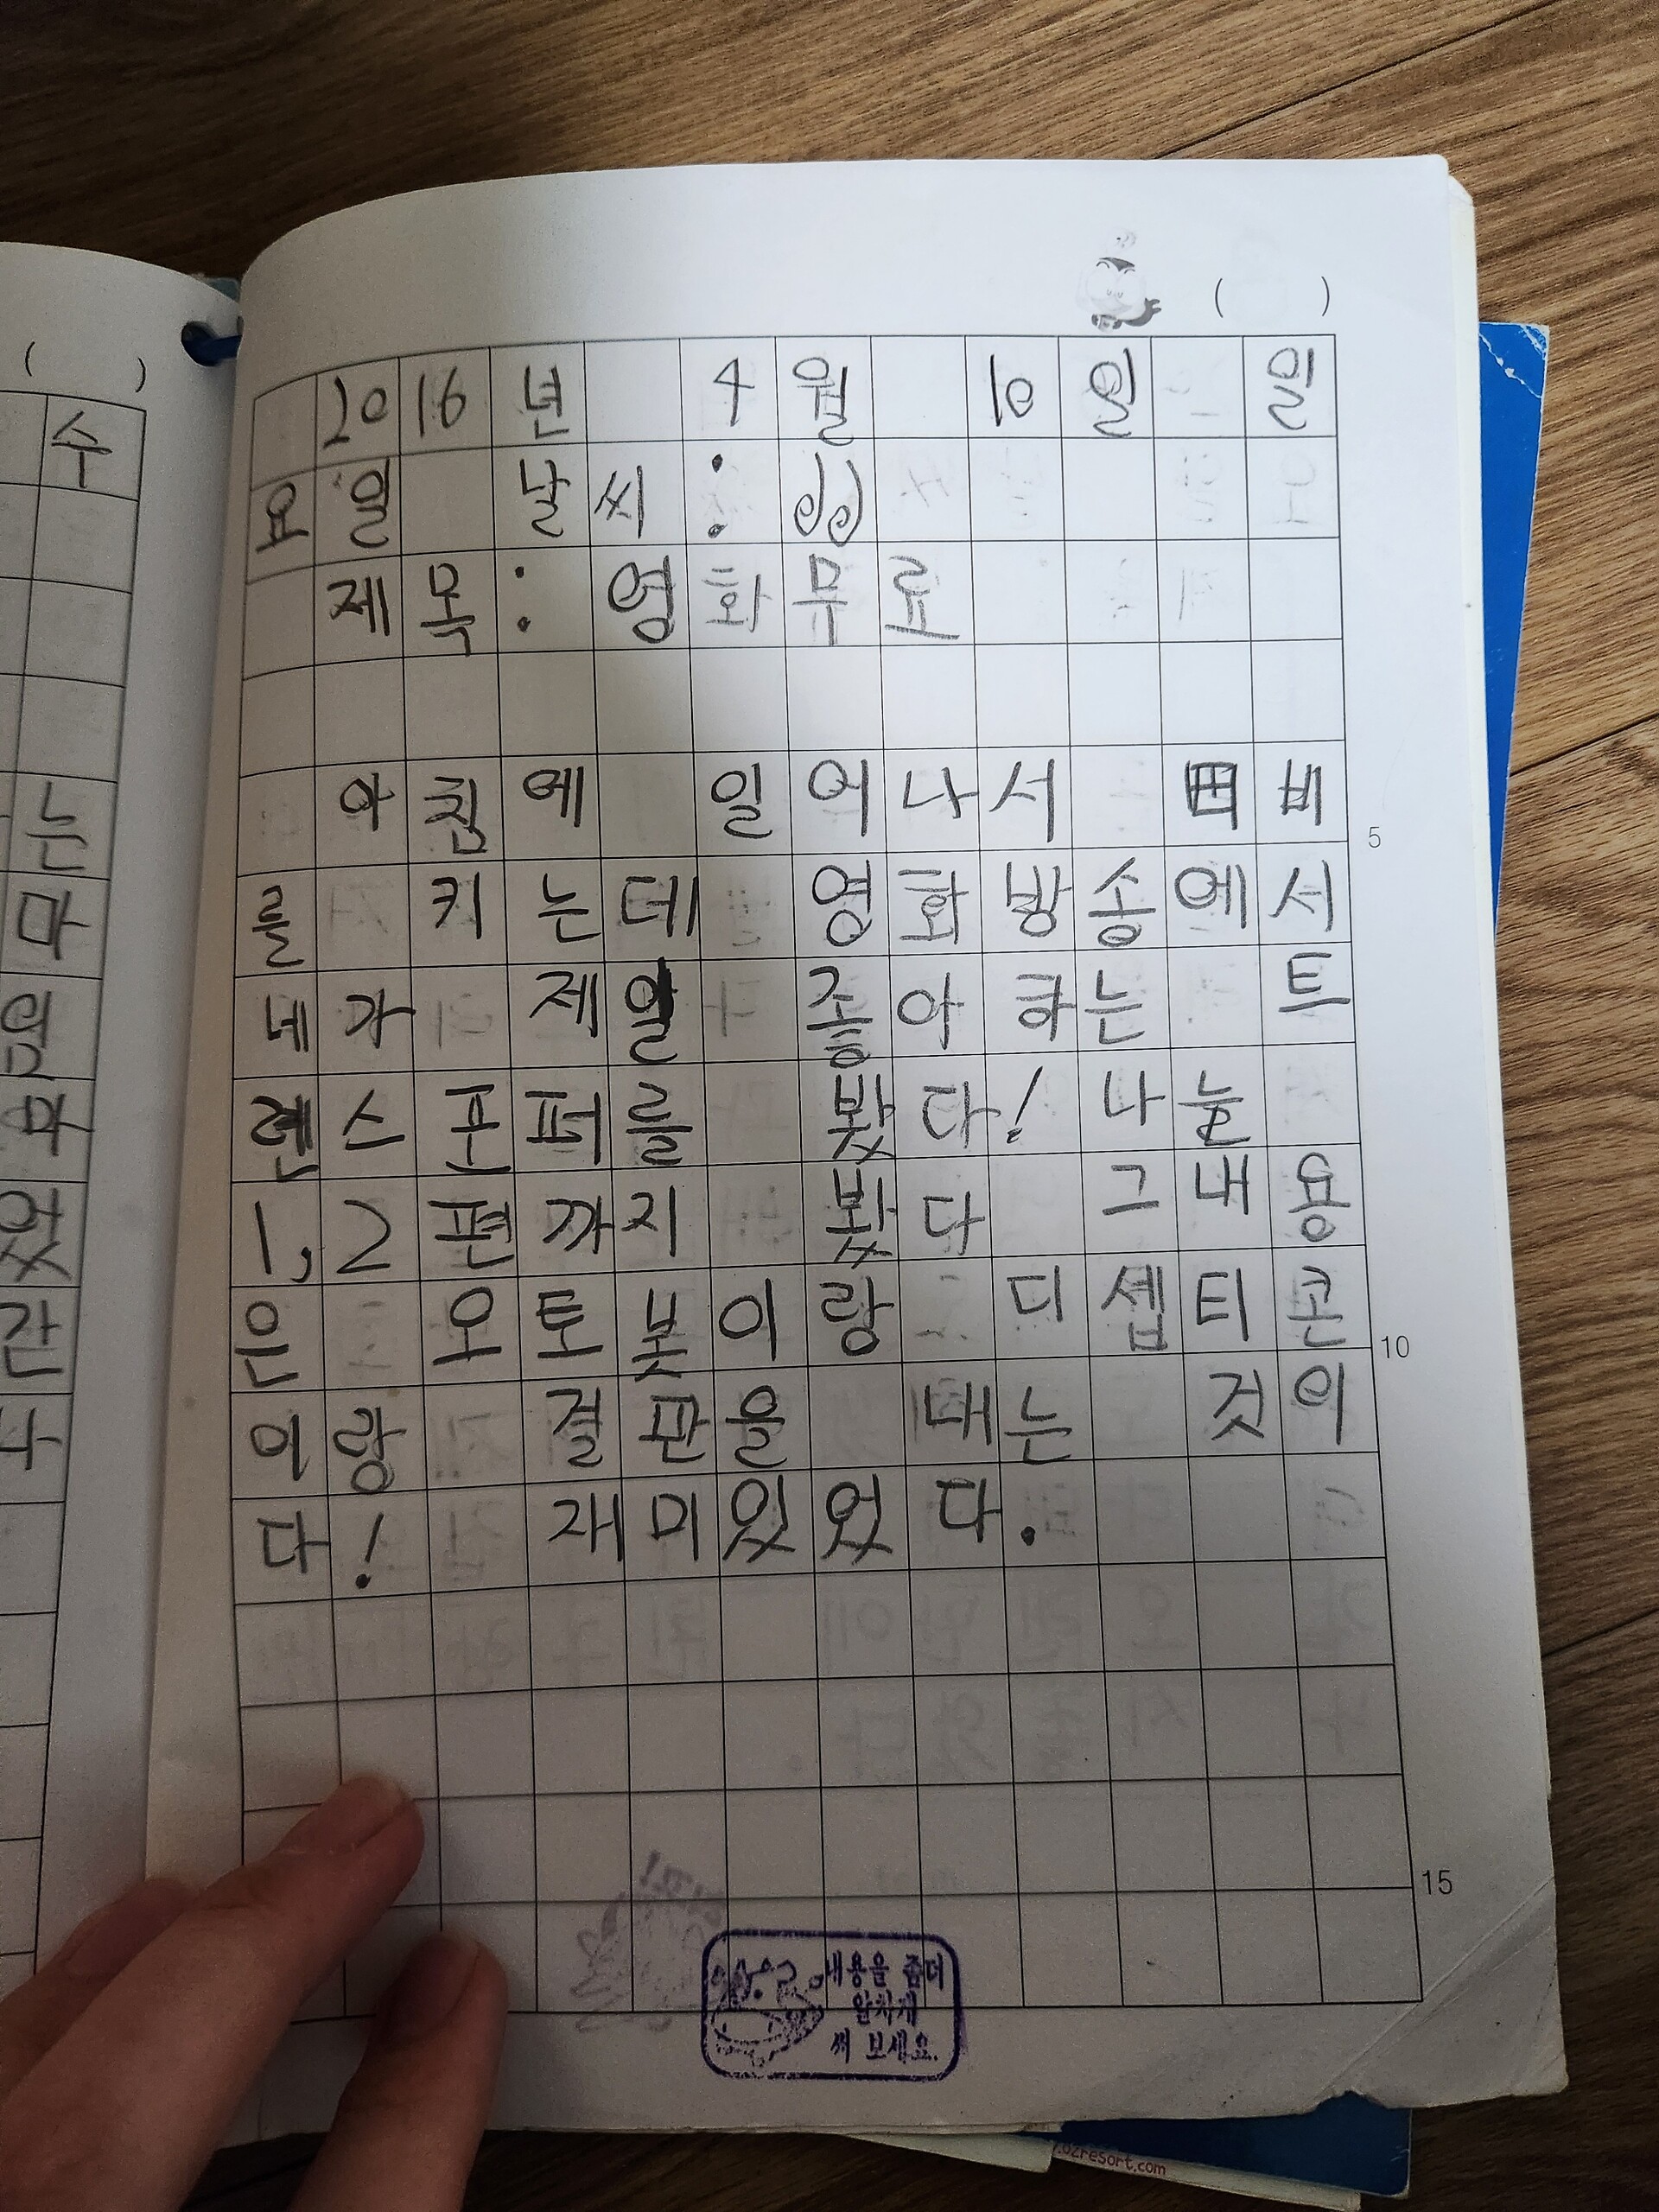 ( )
수
는
마
았
간
( )
2016년 4월 10일 일
요일 날씨:
제목: 영화무료
아침에 일어나서 티비
를 키는데 영화방송에서
네가 제일 좋아하는 트
렌스포퍼를 봤다! 나는
1,2편까지 봤다 그내용
은 오토봇이랑 디셉티콘
이랑 결판을 내는 것이
다! 재미있었다.
5
10
15
내용을 좀더
알차게
써 보세요.
.ozresort.com